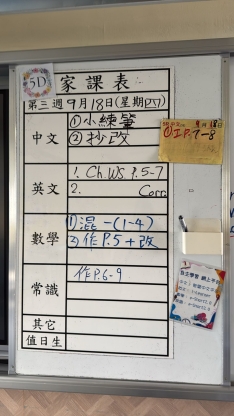 5D
家課表
第三週9月18日(星期四)
中文
①小練筆
②抄改
英文
1. Ch.WS P.5-7
2. Corr
數學
①混一(1-4)
②作P.5+改
常識
作P.6-9
其它
值日生
①I.P.7-8
自主學習 網上平台